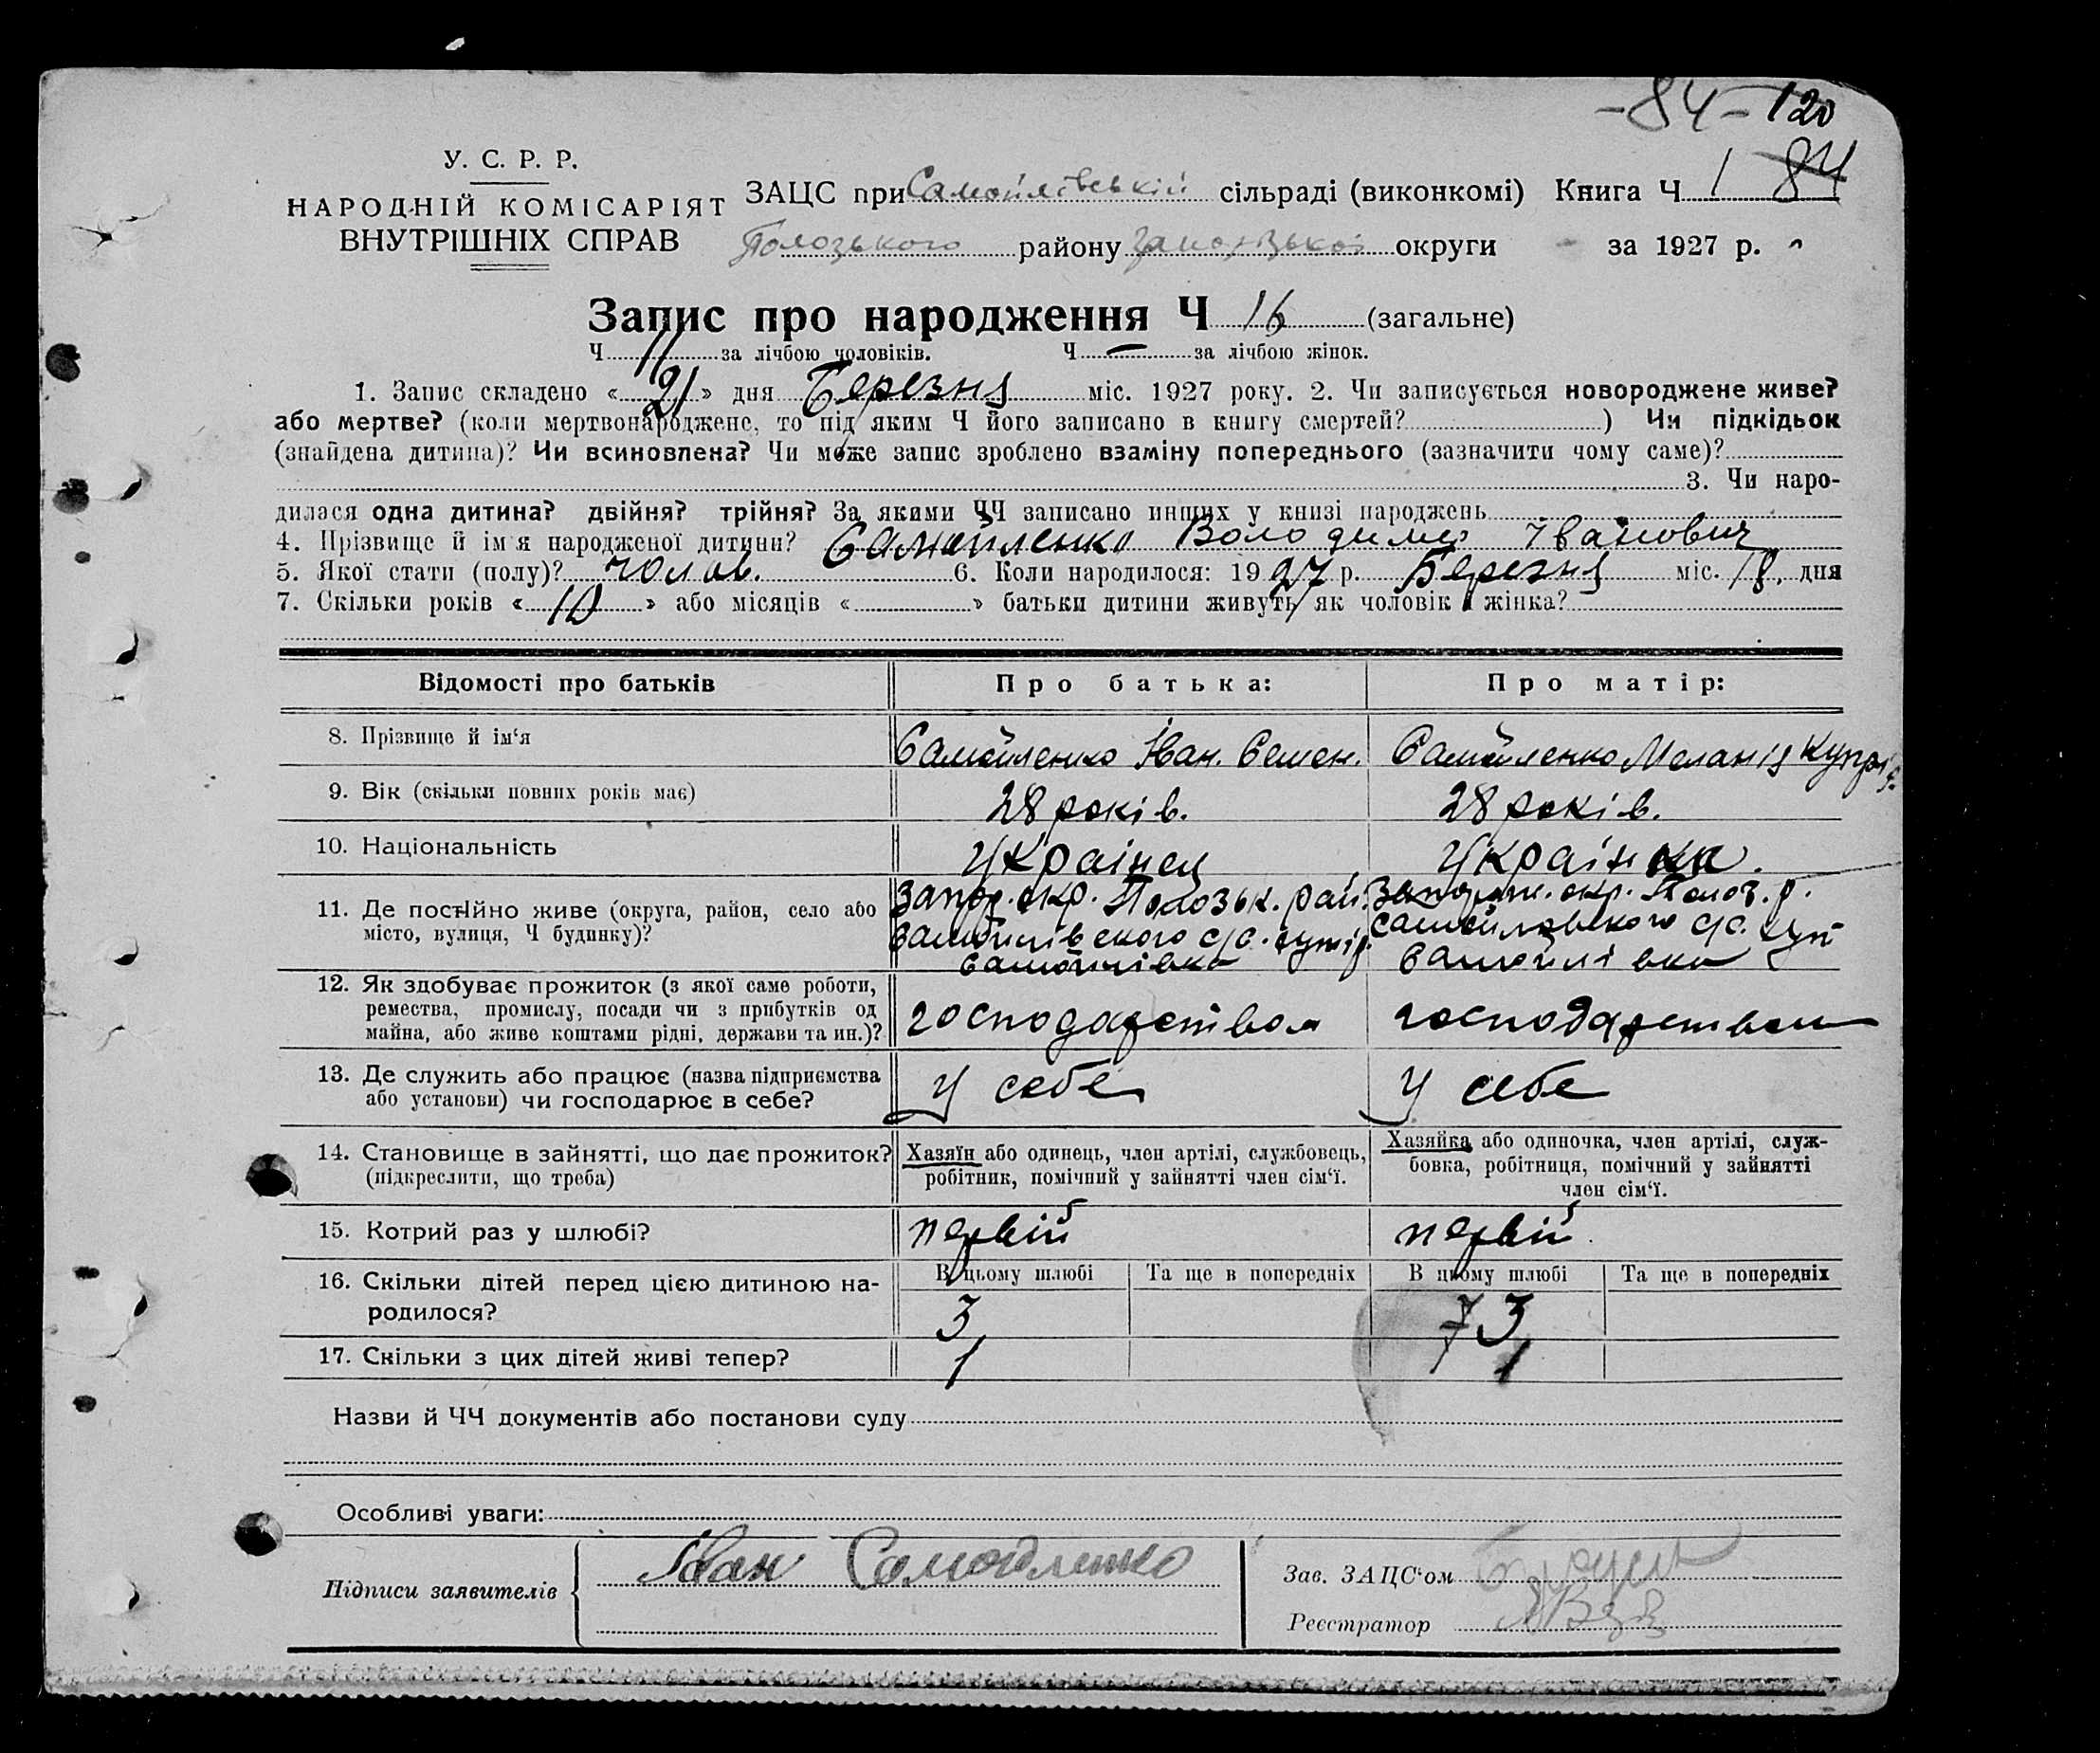 -84- 120
У. С. Р. Р.
НАРОДНІЙ КОМІСАРІЯТ
ВНУТРІШНІХ СПРАВ
ЗАЦС при Самойлівській сільраді (виконкомі) Книга Ч 1 84
Полозького району Запорізької округи за 1927 р.
Запис про народження Ч 16 (загальне)
Ч 11 за лічбою чоловіків. Ч — за лічбою жінок.
1. Запис складено « 21 » дня Березня міс. 1927 року. 2. Чи записується новороджене живе?
або мертве? (коли мертвонароджене, то під яким Ч його записано в книгу смертей? ) Чи підкідьок
(знайдена дитина)? Чи всиновлена? Чи може запис зроблено взаміну попереднього (зазначити чому саме)?
3. Чи наро-
дилася одна дитина? двійня? трійня? За якими ЧЧ записано инших у книзі народжень
4. Прізвище й ім'я народженої дитини? Самойленко Володимер Іванович
5. Якої стати (полу)? чолов. 6. Коли народилося: 1927 р. Березня міс. 18, дня
7. Скільки років « 10 » або місяців « » батьки дитини живуть як чоловік і жінка?
Відомості про батьків Про батька: Про матір:
8. Прізвище й ім‘я Самойленко Іван. Семен. Самойленко Меланія Купрі
9. Вік (скільки повних років має) 28 років. 28 років.
10. Національність Українец Українка.
11. Де постійно живе (округа, район, село або
місто, вулиця, Ч будинку)?
Запор. окр. Полозьк. рай.
Самойлівского с/с. хутір
Самойлівка
окр. Полог. р.
Самойловского с/с. хут
Самойлівка
12. Як здобуває прожиток (з якої саме роботи,
ремества, промислу, посади чи з прибутків од
майна, або живе коштами рідні, держави та ин.)?
господарством господарством
13. Де служить або працює (назва підприємства
або установи) чи господарює в себе?
У себе У себе
14. Становище в зайнятті, що дає прожиток?
(підкреслити, що треба)
Хазяїн або одинець, член артілі, службовець,
робітник, помічний у зайнятті член сім‘ї.
Хазяйка або одиночка, член артілі, служ-
бовка, робітниця, помічний у зайнятті
член сім‘ї.
15. Котрий раз у шлюбі? первій первій.
16. Скільки дітей перед цією дитиною на-
родилося?
В цьому шлюбі Та ще в попередніх В цьому шлюбі Та ще в попередніх
3 7 3
17. Скільки з цих дітей живі тепер? 1 1
Назви й ЧЧ документів або постанови суду
Особливі уваги:
Підписи заявителів Іван Самойленко
Зав. ЗАЦС‘ом
Реєстратор